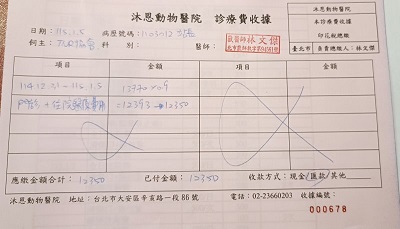 沐恩動物醫院 診療費收據
日期：115.1.5 病歷號碼：1103-12
飼主： 科別： 醫師：
獸醫師林文傑
沐恩動物醫院
本診療費收據
印花稅總繳
臺北市 負責總繳人：林文傑
項目 金額 項目 金額
114.12.21-115.1.5
=12393→12350
應繳金額合計：12350 已付金額：12350 收款方式：現金/匯款/其他
沐恩動物醫院 地址：台北市大安區辛亥路一段86號 電話：02-23660203 收據編號：
000678